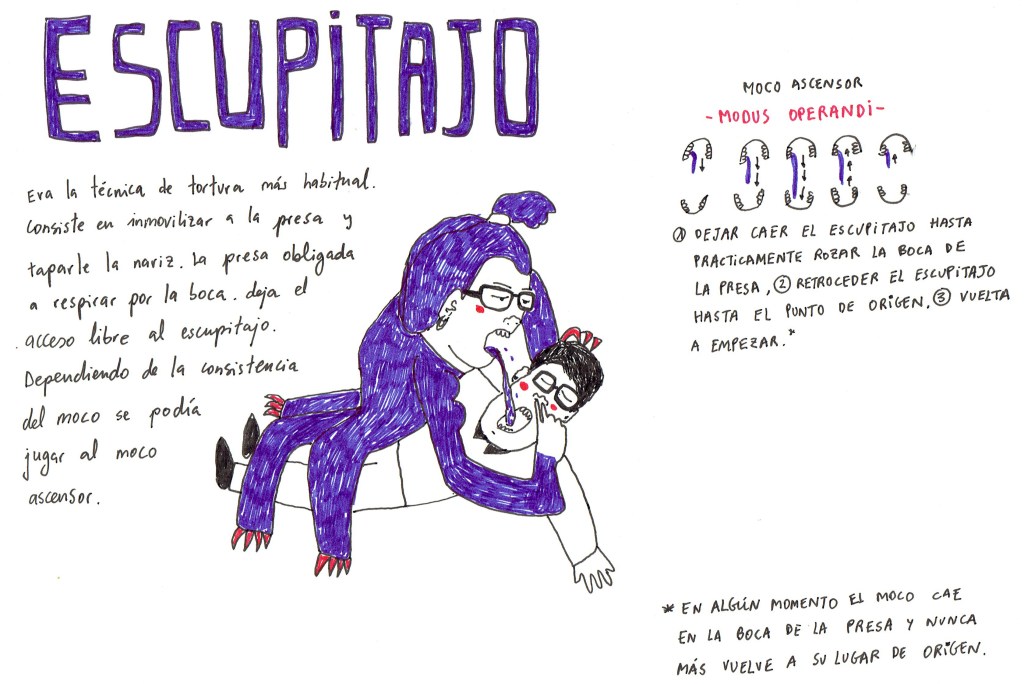 ESCUPiTAJO
Era la técnica de tortura más habitual.
Consiste en inmovilizar a la presa y
taparle la nariz. La presa obligada
a respirar por la boca. deja el
acceso libre al escupitajo.
Dependiendo de la consistencia
del moco se podía
jugar al moco
ascensor.
MOCO ASCENSOR
- MODUS OPERANDi -
① DEJAR CAER EL ESCUPiTAJO HASTA
PRACTICAMENTE ROZAR LA BOCA DE
LA PRESA, ② RETROCEDER EL ESCUPiTAJO
HASTA EL PUNTO DE ORiGEN. ③ VUELTA
A EMPEZAR.*
* EN ALGÚN MOMENTO EL MOCO CAE
EN LA BOCA DE LA PRESA Y NUNCA
MÁS VUELVE A SU LUGAR DE ORiGEN.